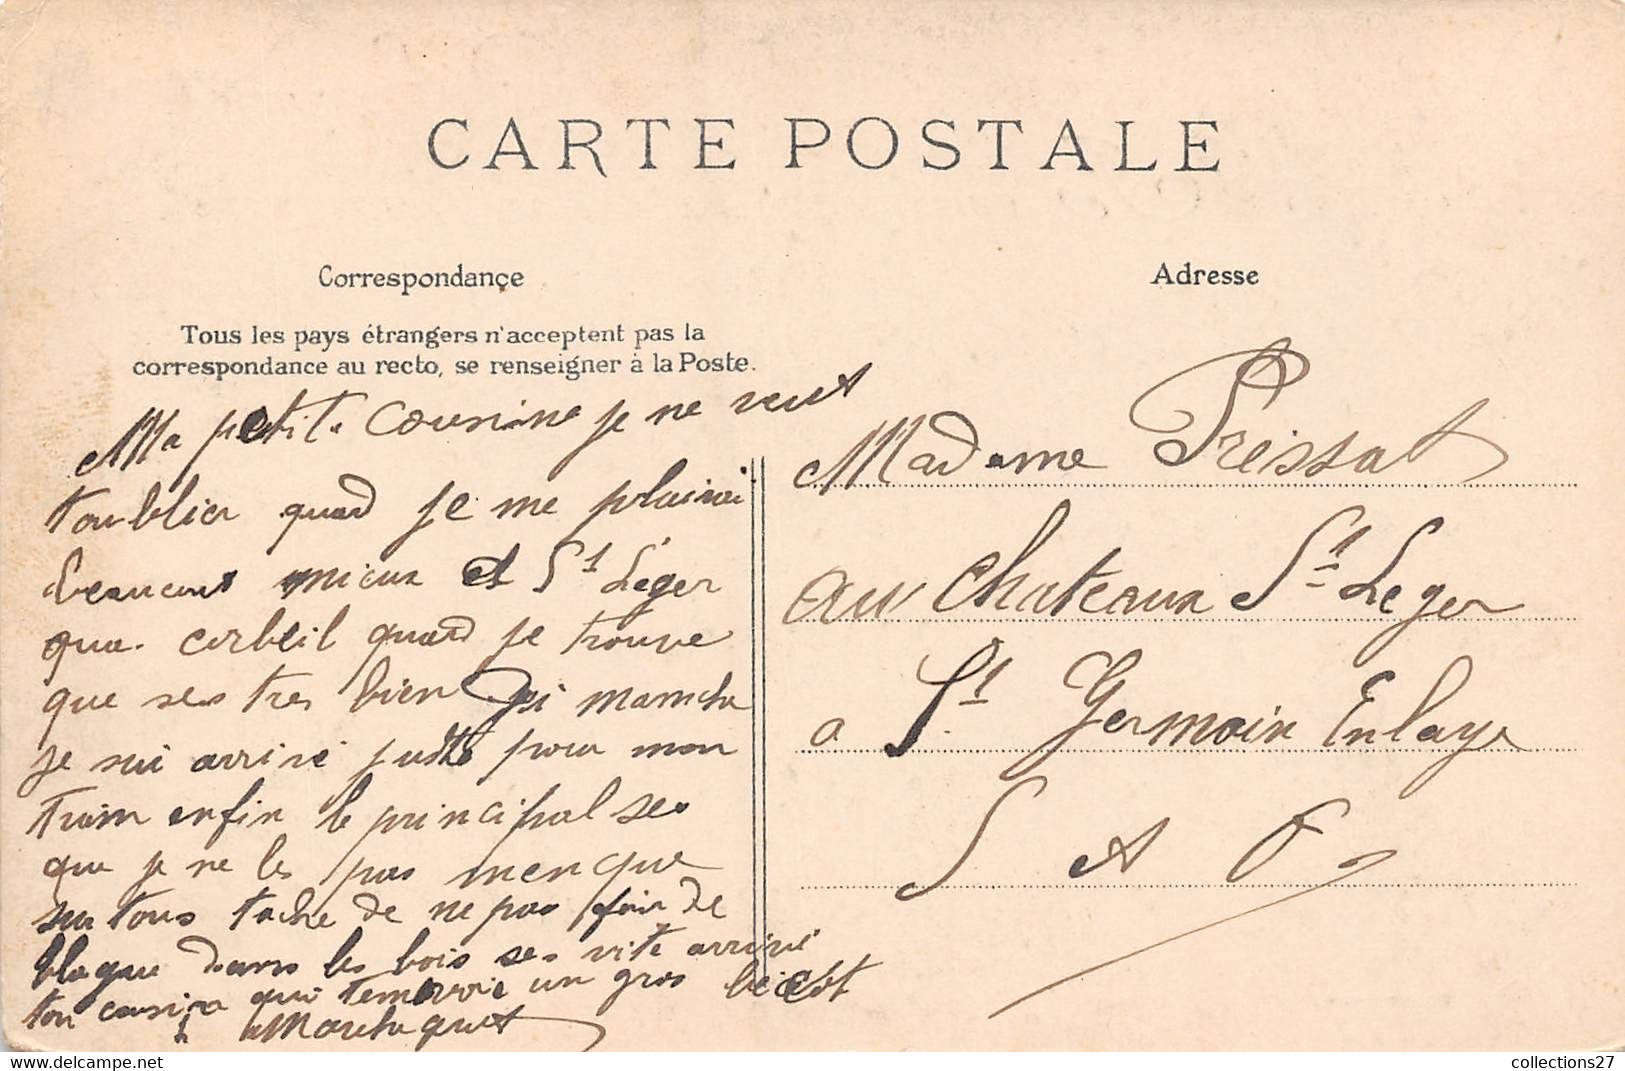 CARTE POSTALE
Correspondance
Adresse
Tous les pays étrangers n'acceptent pas la
correspondance au recto, se renseigner à la Poste.
Ma petite cousine je ne veut
toublier quand je me plairai
beaucout mieux a St Léger
qua corbeil quand je trouve
que ses tres bien ji manche
je sui arrivé juste pour mon
train enfin le principal ses
que je ne les pas menque
sur tous tache de ne pas fair de
blague dans les bois ses vite arrivé
ton cousin qui tenvoie un gros
Madame Pressat
au Chateaux St Leger
a St Germain Enlaye
S et O
collections27